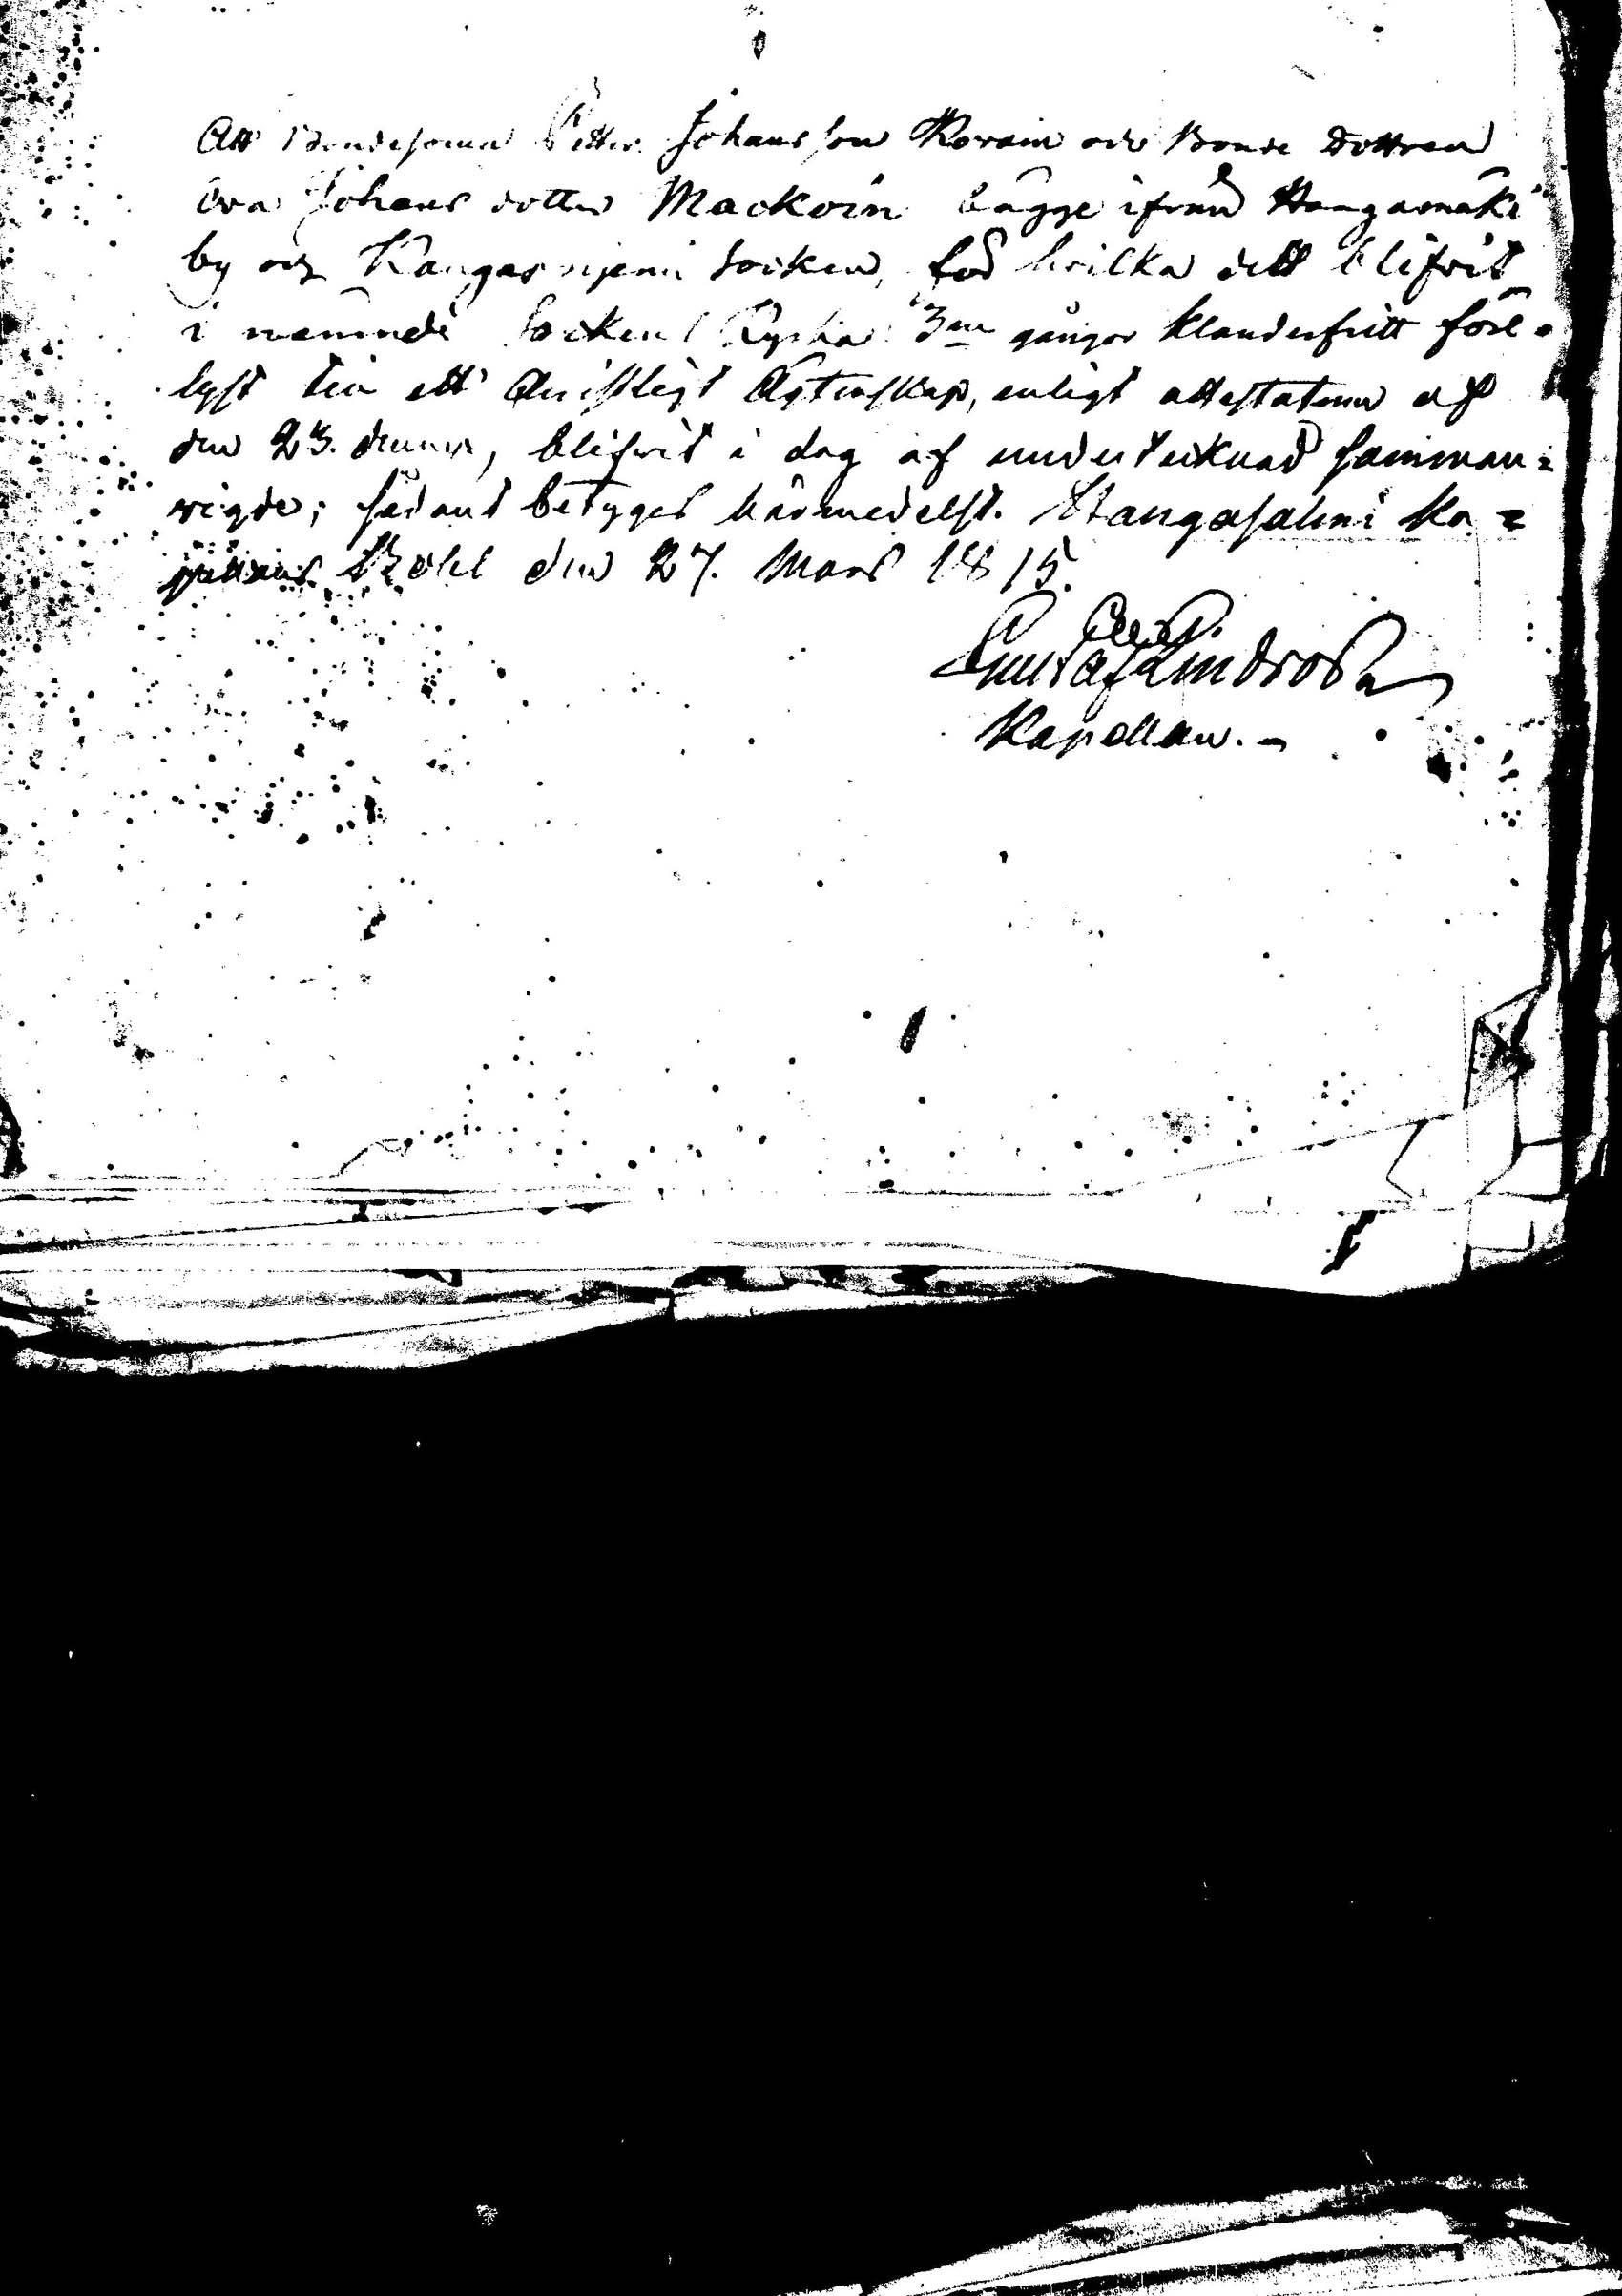 Att Bondesonen Petter Johansson Korain och Bonde Dottren
Eva Johans dotter Mackoin bägge ifrån Haugamäki
by och Kangasniemi Socken, för hvilka det blifvit
i nämnde Socken Kyrka 3ne gångor klanderfritt före=
lyst til ett Christligt Ägtenskap, enligt attestatum af
den 23. dennes, blifvit i dag af undertecknad samman=
vigde; sådant betyges härmedelst. Hangasalmi Ka=
Böhle den 27. Mars 1815.
Gustaf
Kapellan. -